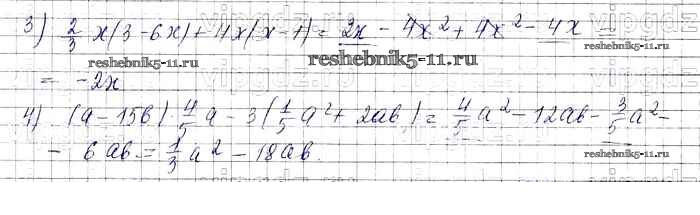 3) 2/3 x(3-6x)+4x(x-1) = 2x - 4x² + 4x² - 4x =
reshebnik5-11.ru
reshebnik5-11.ru
= -2x
4) (a-15b)·4/5 a - 3(1/5 a² + 2ab) = 4/5 a² - 12ab - 3/5 a² -
- 6ab = 1/3 a² - 18ab.
reshebnik5-11.ru
reshebnik5-11.ru